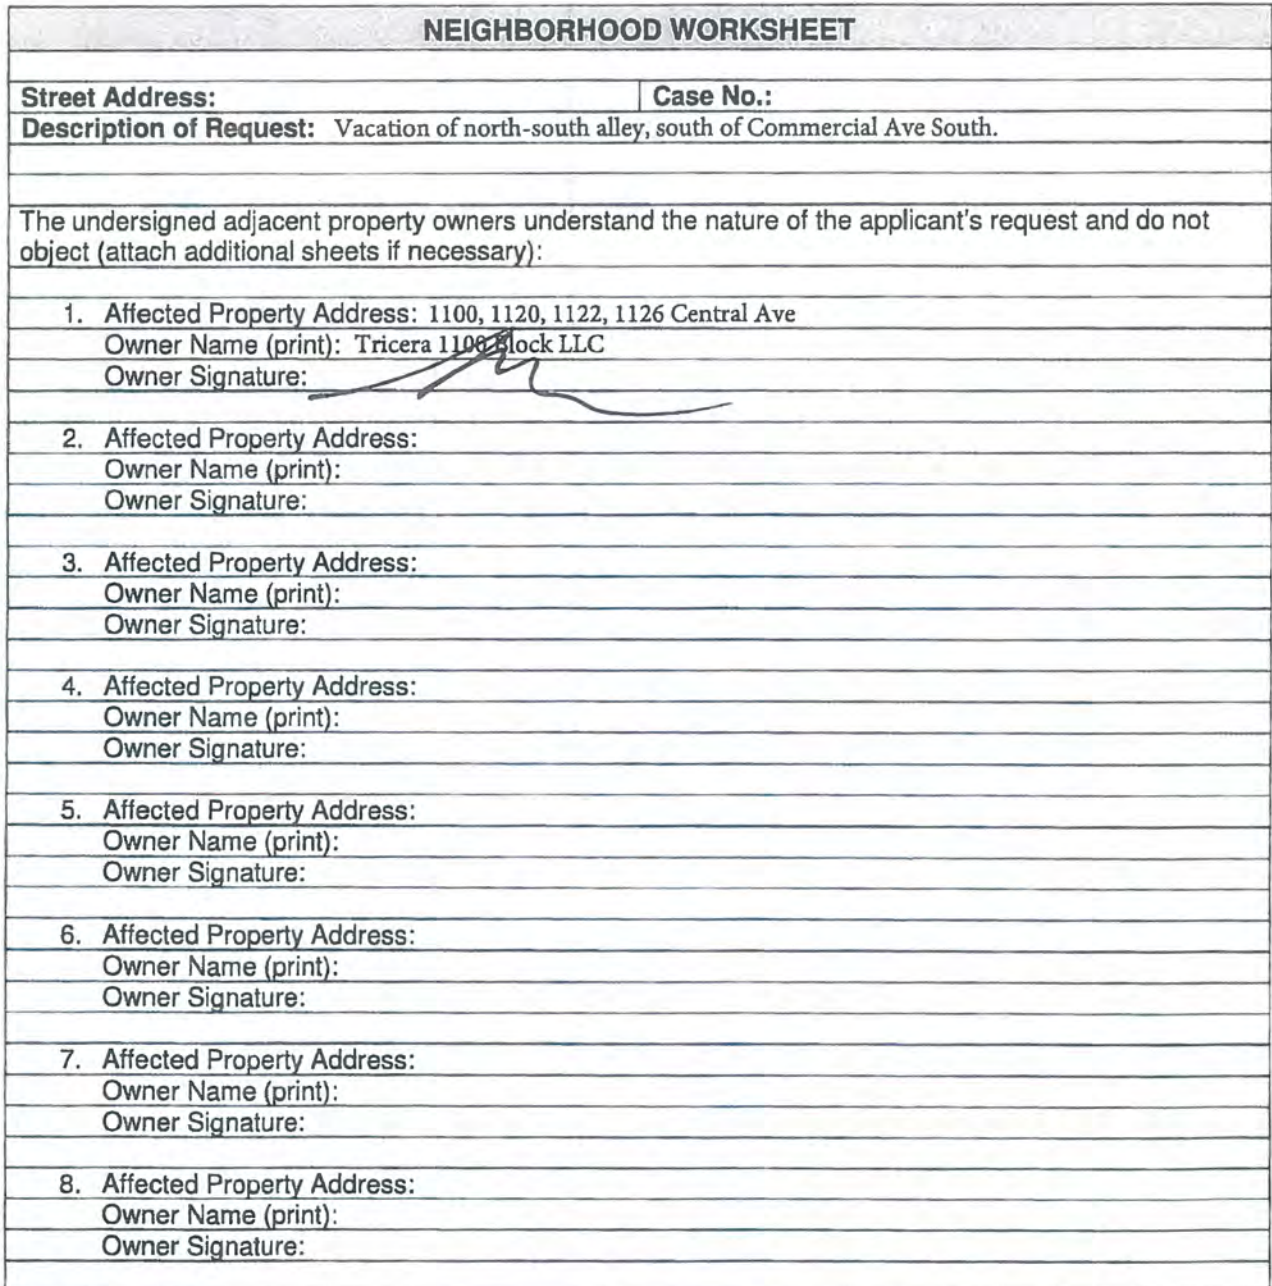 NEIGHBORHOOD WORKSHEET
Street Address: Case No.:
Description of Request: Vacation of north-south alley, south of Commercial Ave South.
The undersigned adjacent property owners understand the nature of the applicant's request and do not
object (attach additional sheets if necessary):
1. Affected Property Address: 1100, 1120, 1122, 1126 Central Ave
Owner Name (print): Tricera 1100 Block LLC
Owner Signature:
2. Affected Property Address:
Owner Name (print):
Owner Signature:
3. Affected Property Address:
Owner Name (print):
Owner Signature:
4. Affected Property Address:
Owner Name (print):
Owner Signature:
5. Affected Property Address:
Owner Name (print):
Owner Signature:
6. Affected Property Address:
Owner Name (print):
Owner Signature:
7. Affected Property Address:
Owner Name (print):
Owner Signature:
8. Affected Property Address:
Owner Name (print):
Owner Signature: